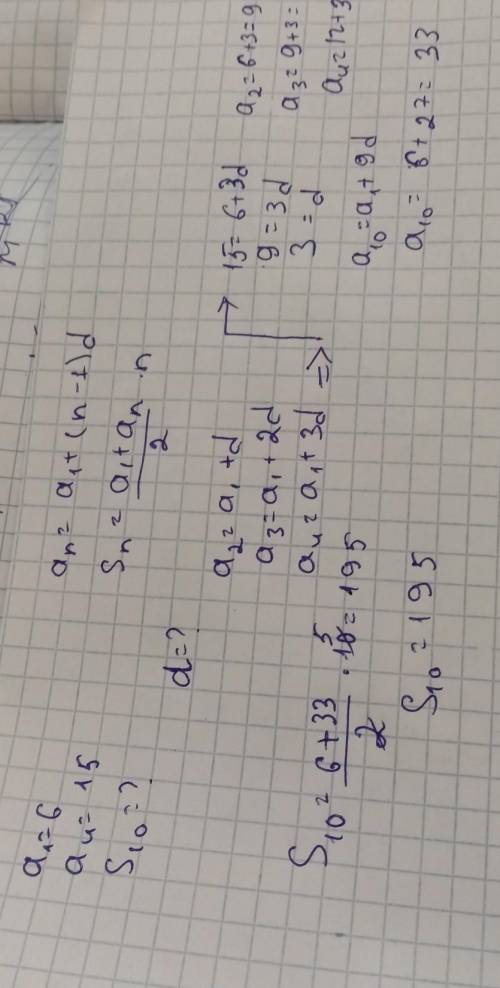 a₁=6
a₄=15
S₁₀=?
aₙ = a₁+(n-1)d
Sₙ = (a₁+aₙ)/2 · n
d=?
a₂=a₁+d
a₃=a₁+2d
a₄=a₁+3d =>
15=6+3d
9=3d
3=d
a₂=6+3=9
a₃=9+3=
a₄=12+3
a₁₀=a₁+9d
a₁₀= 6+27= 33
S₁₀= (6+33)/2 · 10 5 = 195
S₁₀=195